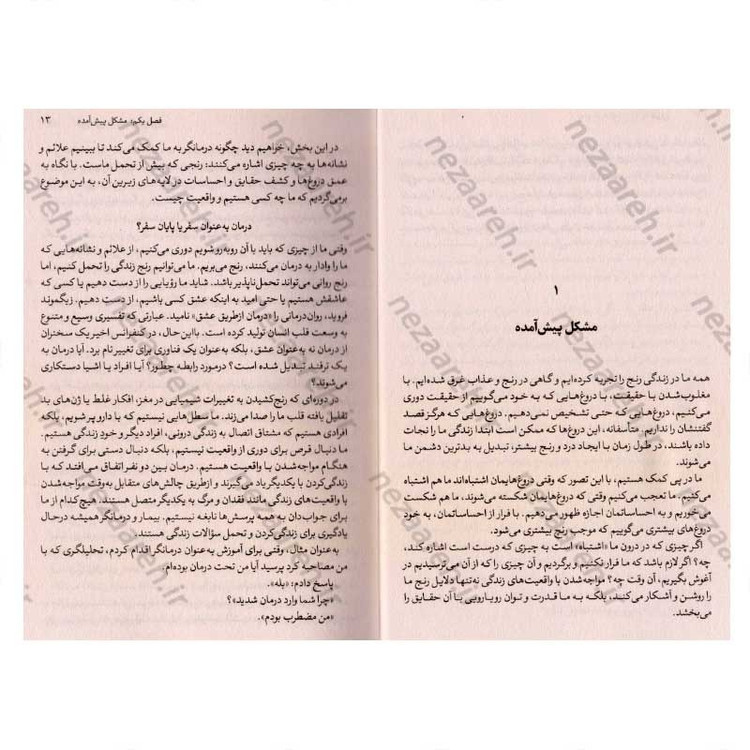 ۱
مشکل پیش‌آمده
همه ما در زندگی رنج را تجربه کرده‌ایم و گاهی در رنج و عذاب غرق شده‌ایم. با
مغلوب‌شدن با حقیقت، با دروغ‌هایی که به خود می‌گوییم از حقیقت دوری
می‌کنیم، دروغ‌هایی که حتی تشخیص نمی‌دهیم. دروغ‌هایی که هرگز قصد
گفتنشان را نداریم. متأسفانه، این دروغ‌ها که ممکن است ابتدا زندگی ما را نجات
داده باشند، در طول زمان با ایجاد درد و رنج بیشتر، تبدیل به بدترین دشمن ما
می‌شوند.
ما در پی کمک هستیم، با این تصور که وقتی دروغ‌هایمان اشتباه‌اند ما هم اشتباه
می‌کنیم. ما تعجب می‌کنیم وقتی که دروغ‌هایمان شکسته می‌شوند، ما هم شکست
می‌خوریم و به احساساتمان پشت می‌کنیم. با فرار از احساساتمان، به خود
دروغ‌های بیشتری می‌گوییم که موجب رنج بیشتری می‌شود.
اگر چیزی که در درون ما «اشتباه» است به چیزی که درست است اشاره کند،
چه؟ اگر لازم باشد که ما فرار نکنیم و برگردیم و آن چیزی را که از آن می‌ترسیدیم در
آغوش بگیریم، آن وقت چه؟ مواجه‌شدن با واقعیت‌های زندگی نه‌تنها دلایل رنج ما
را روشن و آشکار می‌کند، بلکه به ما قدرت و توان رویارویی با آن حقایق را
می‌بخشد.
فصل یکم: مشکل پیش‌آمده ۱۳
در این بخش، خواهیم دید چگونه درمانگر به ما کمک می‌کند تا ببینیم علائم و
نشانه‌ها به چه چیزی اشاره می‌کنند: رنجی که بیش از تحمل ماست. با نگاه به
عمق دروغ‌ها و کشف حقایق و احساسات در لایه‌های زیرین آن، به این موضوع
برمی‌گردیم که ما چه کسی هستیم و واقعیت چیست.
درمان به‌عنوان سفر یا پایان سفر؟
وقتی ما از چیزی که باید با آن روبه‌رو شویم دوری می‌کنیم، از علائم و نشانه‌هایی که
ما را وادار به درمان می‌کنند، رنج می‌بریم. ما می‌توانیم رنج زندگی را تحمل کنیم، اما
رنج روانی می‌تواند تحمل‌ناپذیر باشد. شاید ما رؤیایی را از دست دهیم یا کسی که
عاشقش هستیم یا حتی امید به اینکه عشق کسی باشیم، از دست دهیم. زیگموند
فروید، روان‌درمانی را «درمان ازطریق عشق» نامید. عبارتی که تفسیری وسیع و متنوع
به وسعت قلب انسان تولید کرده است. بااین‌حال، در کنفرانس اخیر یک سخنران
از درمان نه به‌عنوان عشق، بلکه به‌عنوان یک فناوری برای تغییر نام برد. آیا درمان به
یک ترفند تبدیل شده است؟ درمورد رابطه چطور؟ آیا افراد یا اشیا دستکاری
می‌شوند؟
در دوره‌ای که رنج‌کشیدن به تغییرات شیمیایی در مغز، افکار غلط یا ژن‌های بد
تقلیل یافته قلب ما را صدا می‌زند. ما سطل‌هایی نیستیم که با دارو پر شویم، بلکه
افرادی هستیم که مشتاق اتصال به زندگی درونی، افراد دیگر و خود زندگی هستیم.
ما دنبال قرص برای دوری از واقعیت نیستیم، بلکه دنبال دستی برای گرفتن به
هنگام مواجه‌شدن با واقعیت هستیم. درمان بین دو نفر اتفاق می‌افتد که با
زندگی‌کردن با یکدیگر یاد می‌گیرند و ازطریق چالش‌های متقابل به‌وقت مواجه‌شدن
با واقعیت‌های زندگی مانند فقدان و مرگ به یکدیگر متصل هستند. هیچ‌کدام از ما
برای جواب‌دادن به همه پرسش‌ها نابغه نیستیم. بیمار و درمانگر همیشه درحال
یادگیری برای زندگی‌کردن و تحمل سؤالات زندگی هستند.
به‌عنوان مثال، وقتی برای آموزش به‌عنوان درمانگر اقدام کردم، تحلیلگری که با
من مصاحبه کرد پرسید آیا من تحت درمان بوده‌ام.
پاسخ دادم: «بله».
«چرا شما وارد درمان شدید»؟
«من مضطرب بودم».
nezaareh.ir
nezaareh.ir
nezaareh.ir
nezaareh.ir
nezaareh.ir